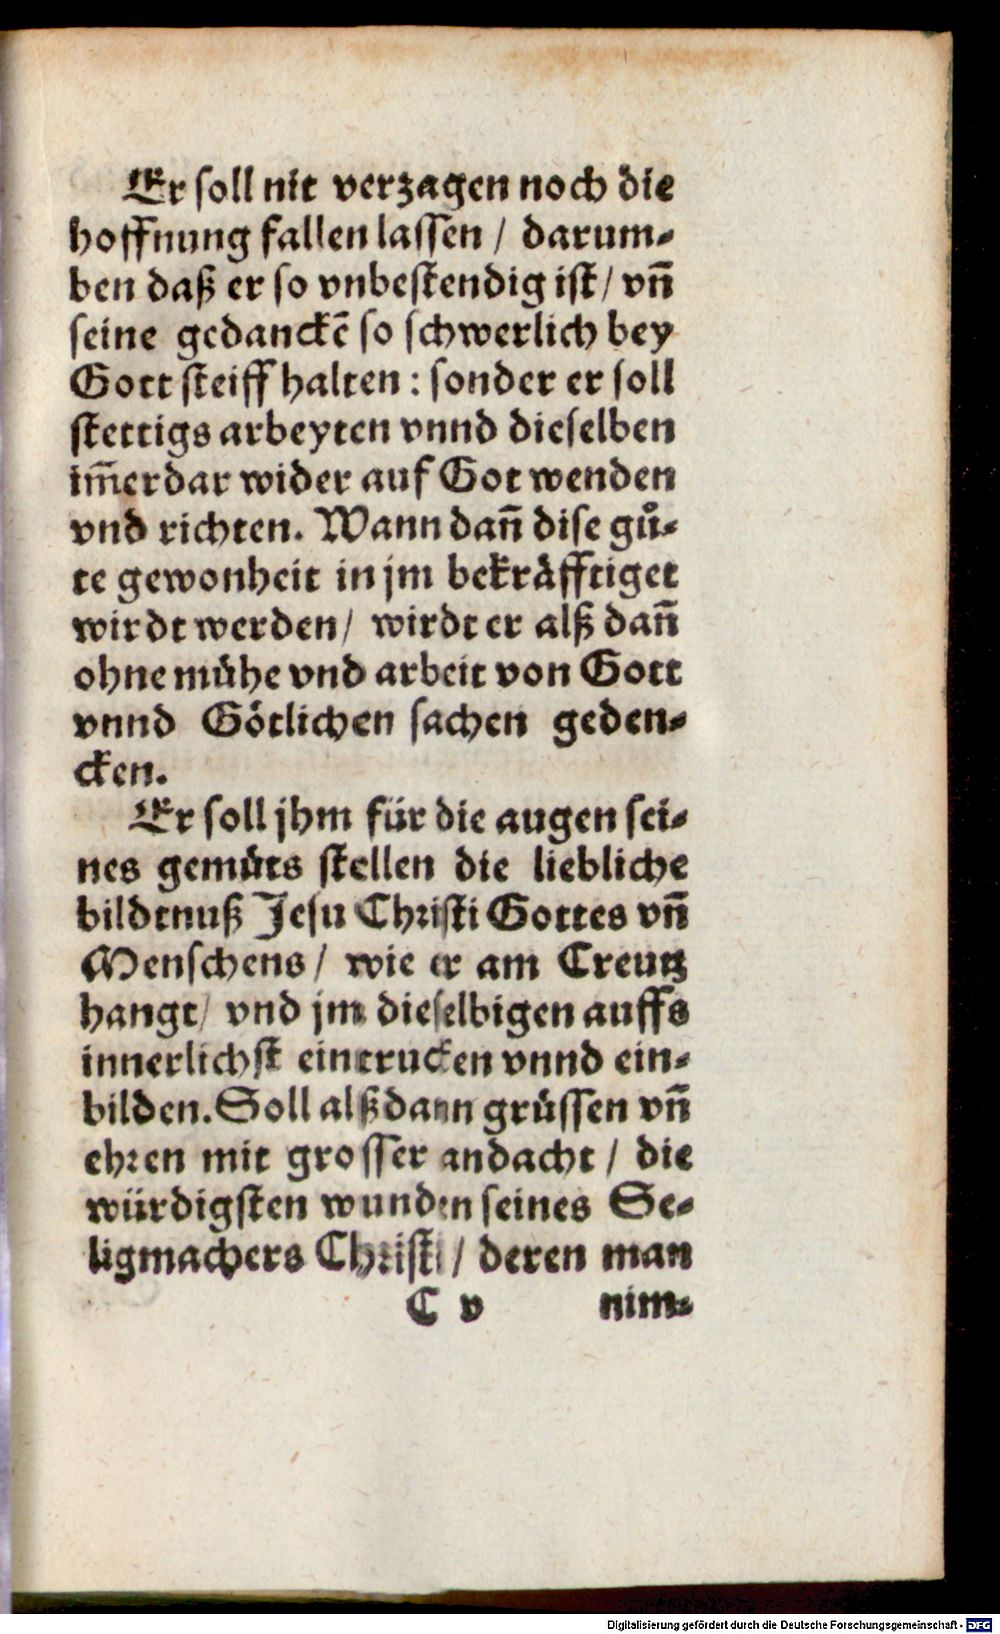 Er soll nit verzagen noch die
hoffnung fallen lassen / darum⸗
ben daß er so vnbestendig ist / vñ
seine gedanckē so schwerlich bey
Gott steiff halten : sonder er soll
stettigs arbeyten vnnd dieselben
im̃erdar wider auf Got wenden
vnd richten. Wann dañ dise gů⸗
te gewonheit in jm bekräfftiget
wirdt werden / wirdt er alß dañ
ohne mühe vnd arbeit von Gott
vnnd Götlichen sachen geden⸗
cken.
Er soll jhm für die augen sei⸗
nes gemüts stellen die liebliche
bildtnuß Jesu Christi Gottes vñ
Menschens / wie er am Creutz
hangt / vnd jm dieselbigen auffs
innerlichst eintrucken vnnd ein⸗
bilden. Soll alß dann grüssen vñ
ehren mit grosser andacht / die
würdigsten wunden seines Se⸗
ligmachers Christi / deren man
C v nim⸗
Digitalisierung gefördert durch die Deutsche Forschungsgemeinschaft - DFG